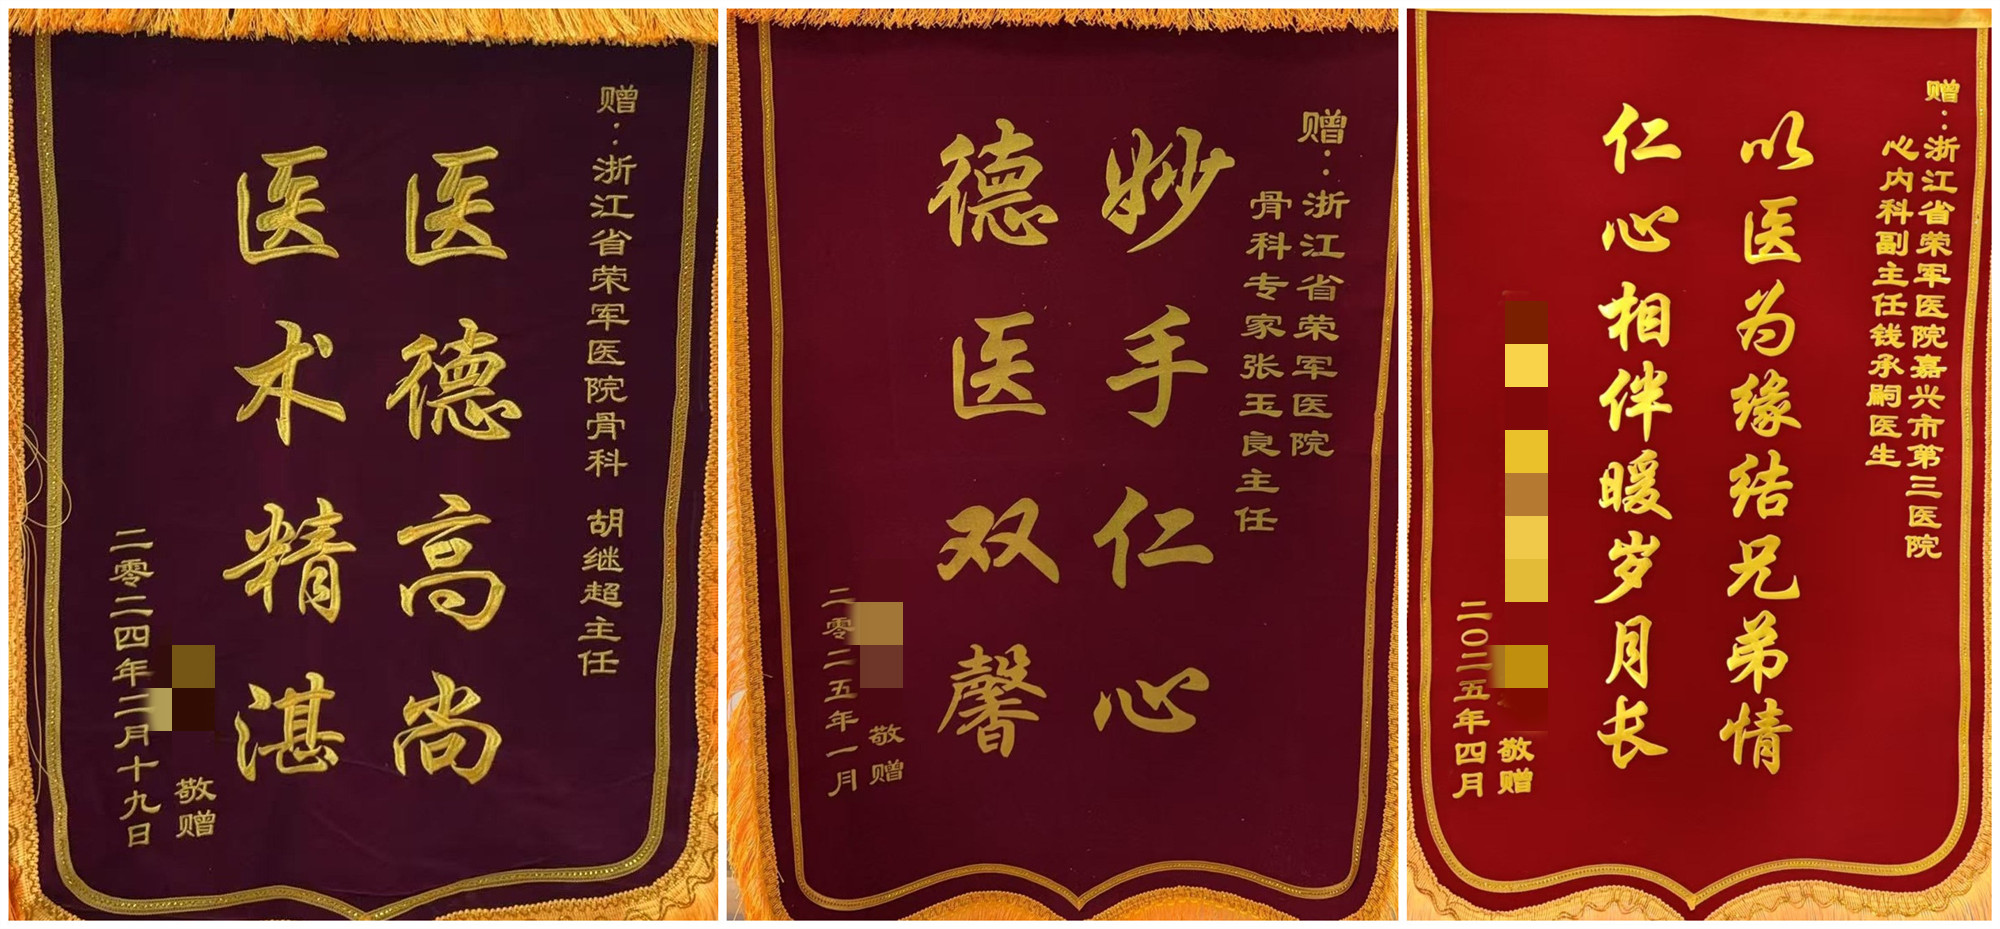 赠：浙江省荣军医院骨科 胡继超主任
医德高尚
医术精湛
敬赠
二零二四年二月十九日
赠：浙江省荣军医院
骨科专家张玉良主任
妙手仁心
德医双馨
敬赠
二零二五年一月
赠：浙江省荣军医院嘉兴市第三医院
心内科副主任钱承嗣医生
以医为缘结兄弟情
仁心相伴暖岁月长
敬赠
二〇二五年四月